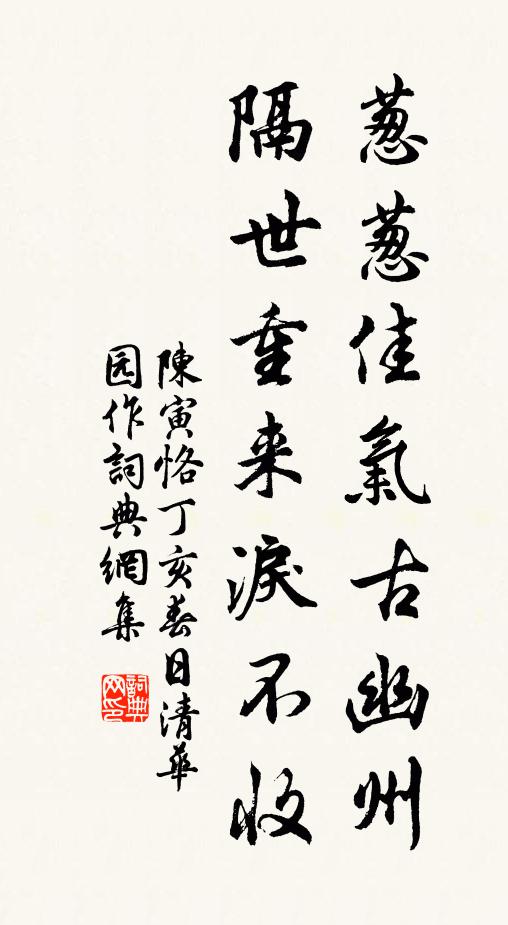 蔥蔥佳氣古幽州
隔世重来淚不收
陳寅恪丁亥春日清華
园作詞典網集
詞典网印